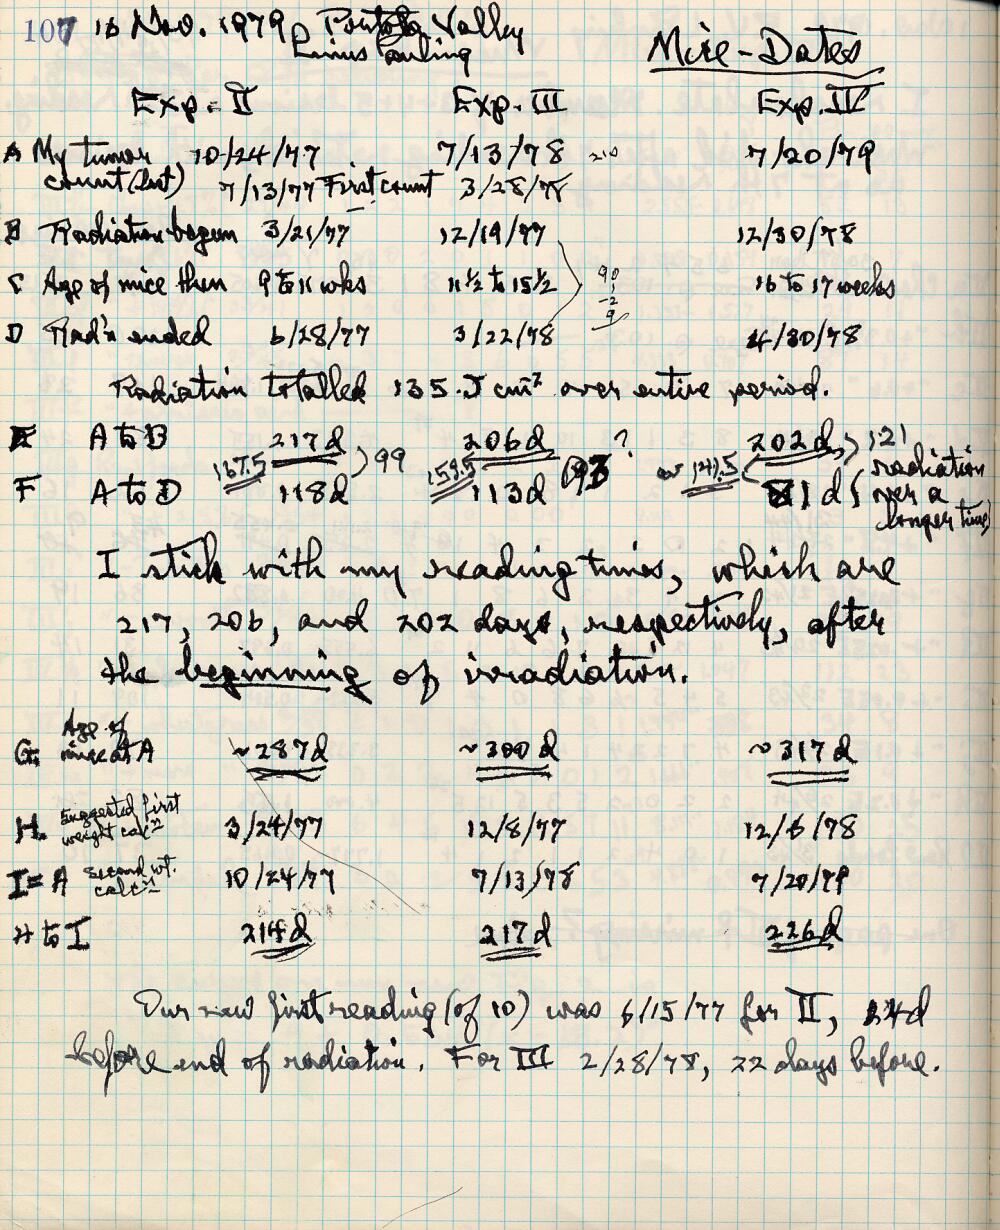 107 16 Nov. 1979 Portola Valley
Linus Pauling Mice-Dates
Exp. II Exp. III Exp. IV
A My tumor count (last) 10/24/77 7/13/78 210 7/20/79
7/13/77 First count 3/28/78
B Radiation begun 3/21/77 12/19/77 12/30/78
C Age of mice then 9 to 11 wks 11 ½ to 15 ½ 16 to 17 weeks
90
1
-2
9
D Rad'n ended 6/28/77 3/22/78 4/30/78
Radiation totalled 135 J cm² over entire period.
E A to B 217d 206d ? 202d 121
167.5 )99 159.5 93 or 141.5 radiation
F A to D 118d 113d 81d over a
longer time)
I stick with my reading times, which are
217, 206, and 202 days, respectively, after
the beginning of irradiation.
G. Age of mice at A ~287d ~300d ~317d
H. Suggested first weight calcn 3/24/77 12/8/77 12/6/78
I = A second wt. calcn 10/24/77 7/13/78 7/20/79
H to I 214d 217d 226d
Our new first reading (of 10) was 6/15/77 for II, 24d
before end of radiation. For III 2/28/78, 22 days before.